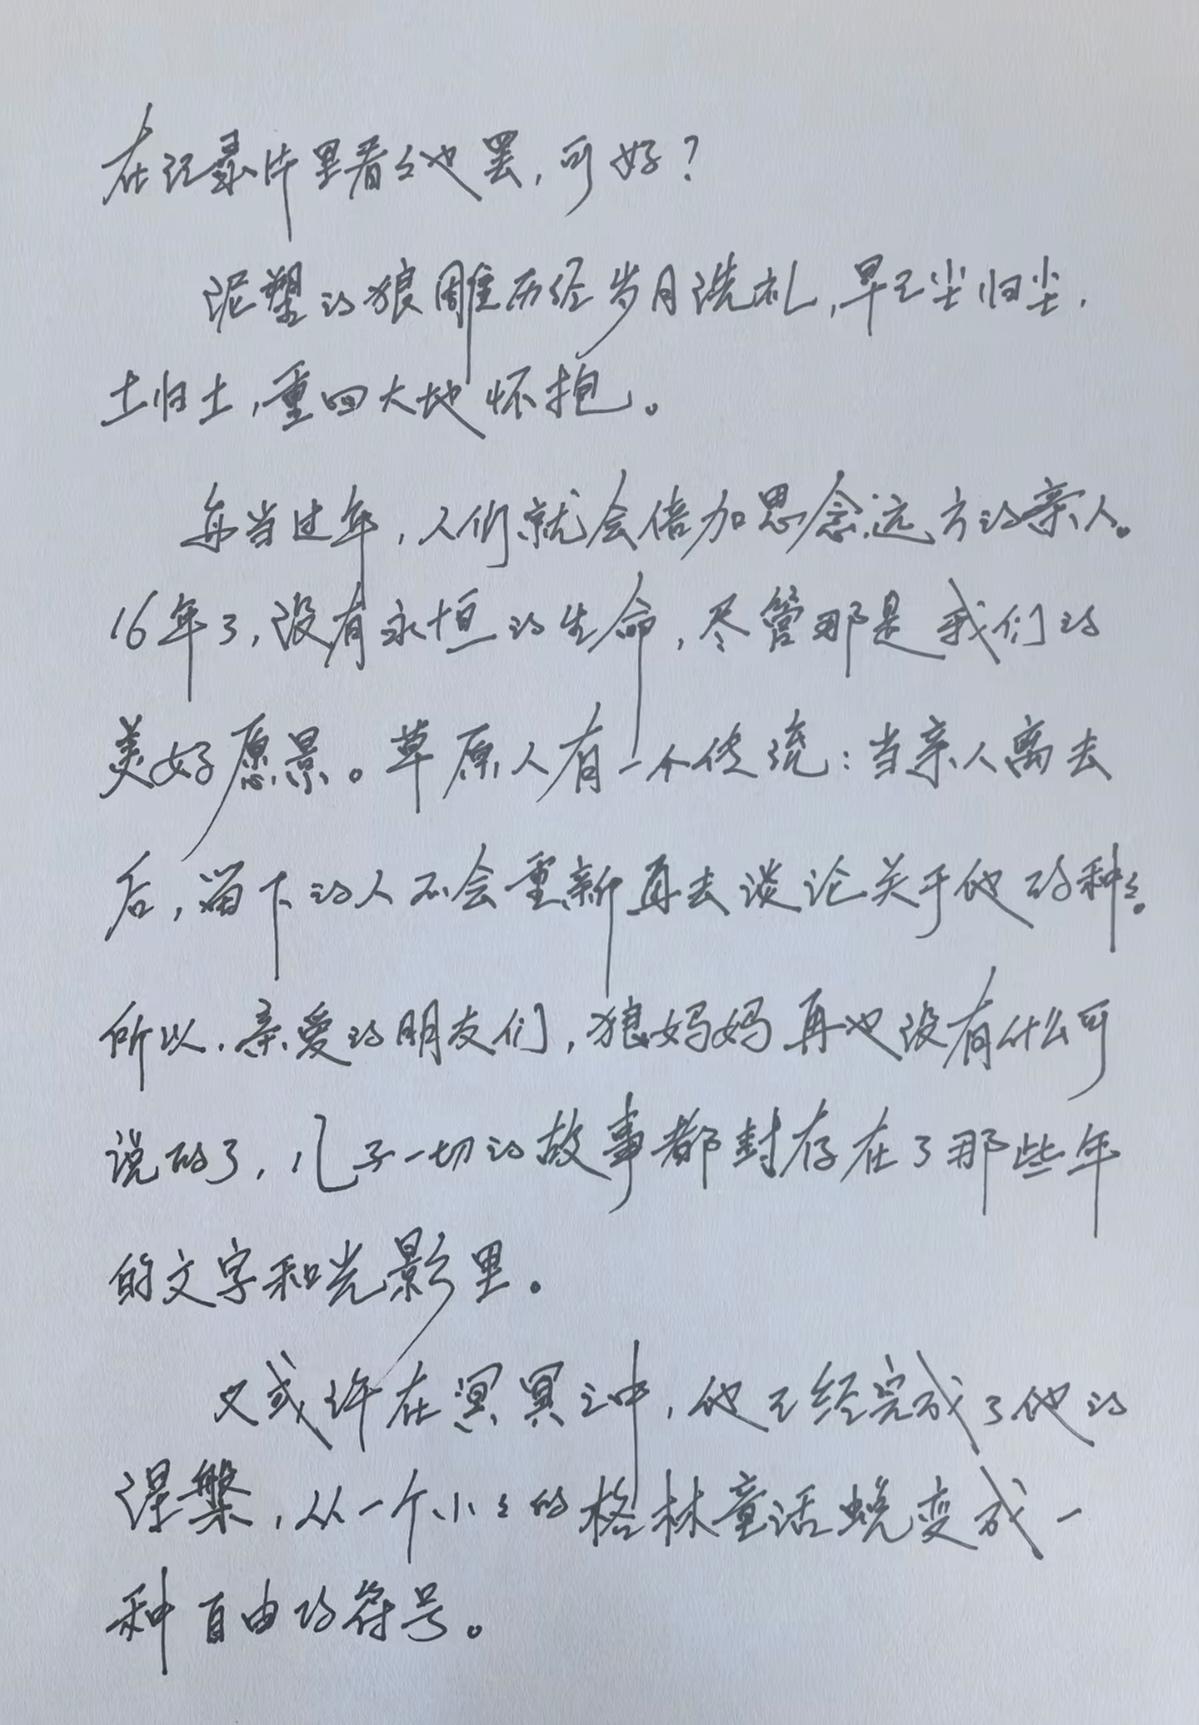 在记录片里看看他罢，可好？
泥塑的狼雕历经岁月洗礼，早已尘归尘，
土归土，重回大地怀抱。
每当过年，人们就会倍加思念远方的亲人。
16年了，没有永恒的生命，尽管那是我们的
美好愿景。草原人有一个传统：当亲人离去
后，留下的人不会重新再去谈论关于他的种种。
所以，亲爱的朋友们，狼妈妈再也没有什么可
说的了，儿子一切的故事都封存在了那些年
的文字和光影里。
又或许在冥冥之中，他已经完成了他的
涅槃，从一个小小的格林童话蜕变成一
种自由的符号。